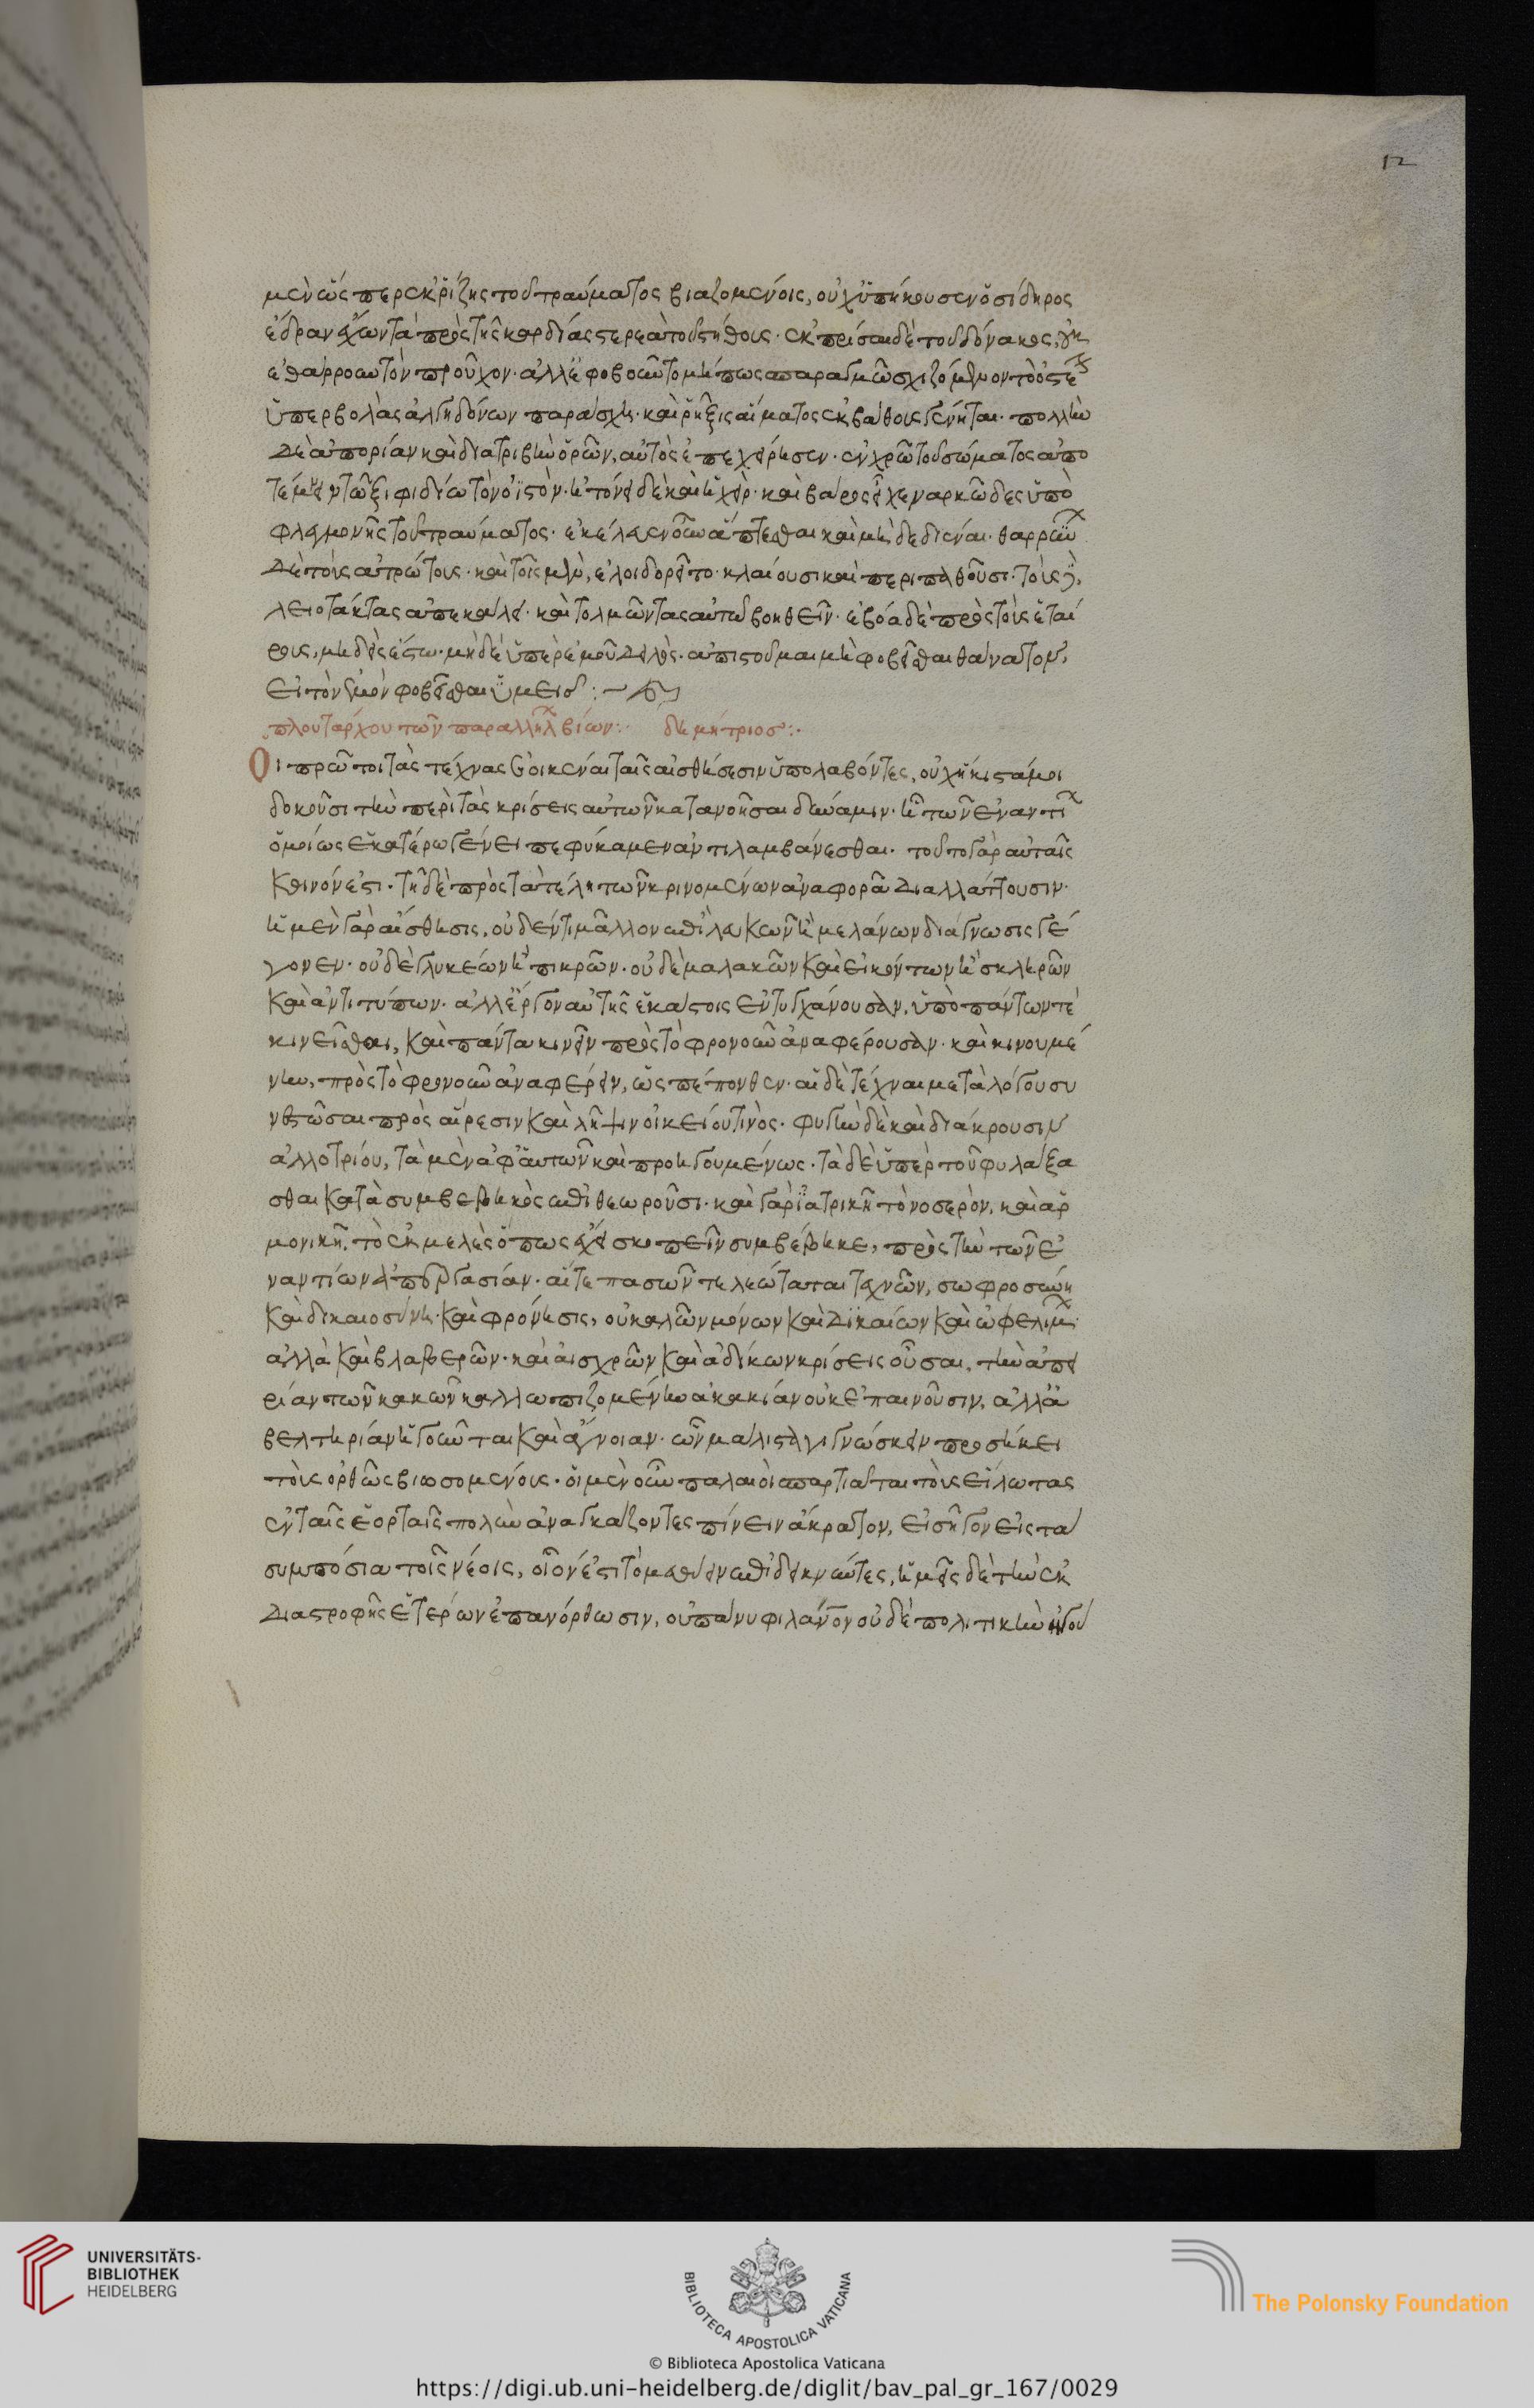 12
μὲν ὥσπερ ἐκ ῥίζης τοῦ τραύματος βιαζομένοις, οὐχ ὑπήκουσεν ὁ σίδηρος
ἕδραν ἔχων τὰ πρὸ τῆς καρδίας στερεὰ τοῦ στήθους· ἐκπρίσαι δὲ τοῦ δόνακος, οὐκ
ἐθάρρουν τὸν προῦχον· ἀλλ' ἐφοβοῦντο μήπως σπαραγμῷ σχιζόμενον τὸ ὀστε
ὑπερβολὰς ἀλγηδόνων παράσχῃ· καὶ ῥῆξις αἵματος ἐκ βάθους γένηται· πολλὴν
δὲ ἀπορίαν καὶ διατριβὴν ὁρῶν, αὐτὸς ἐπεχείρησεν· ἐν χρῷ τοῦ σώματος ἀπο
τέμνειν τῷ ξιφιδίῳ τὸν οἰστόν· ἠτόνει δὲ καὶ ἡ χείρ· καὶ βάρος εἶχε ναρκῶδες ὑπὸ
φλεγμονῆς τοῦ τραύματος· ἐκέλευεν οὖν ἅπτεσθαι καὶ μὴ δεδιέναι· θαρρῶν
δὲ τοὺς ἀτρώτους· καὶ τοῖς μὲν, ἐλοιδορεῖτο κλαίουσι καὶ περιπαθοῦσι· τοὺς δὲ,
λειποτάκτας ἀπεκάλει· μὴ τολμῶντας αὐτῷ βοηθεῖν· ἐβόα δὲ πρὸς τοὺς ἑταί
ρους, μηδεὶς ἔστω· μηδὲ ὑπὲρ ἐμοῦ δειλός· ἀπιστοῦμαι μὴ φοβεῖσθαι θάνατον,
εἰ τὸν ἐμὸν φοβεῖσθε ὑμεῖς :~
πλουτάρχου τῶν παραλλήλ βίων:· δημήτριος:·
Οἱ πρῶτοι τὰς τέχνας ἐοικέναι ταῖς αἰσθήσεσιν ὑπολαβόντες, οὐχ ἥκιστά μοι
δοκοῦσι τὴν περὶ τὰς κρίσεις αὐτῶν κατανοῆσαι δύναμιν· ᾗ τῶν ἐναντί
ὁμοίως ἑκατέρῳ γένει πεφύκαμεν ἀντιλαμβάνεσθαι· τοῦτο γὰρ αὐταῖς
κοινόν ἐστι· τῇ δὲ πρὸς τὰ τέλη τῶν κρινομένων ἀναφορᾷ διαλλάττουσιν·
ἡ μὲν γὰρ αἴσθησις, οὐδέν τι μᾶλλον ἐπὶ λευκῶν ἢ μελάνων διαγνώσει γέ
γονεν· οὐδὲ γλυκέων ἢ πικρῶν· οὐδὲ μαλακῶν καὶ εἰκόντων ἢ σκληρῶν
καὶ ἀντιτύπων· ἀλλ' ἔργον αὐτῆς ἑκάστοις ἐντυγχάνουσαν, ὑπὸ πάντων τὲ
κινεῖσθαι, καὶ πάντα κινεῖν πρὸς τὸ φρονοῦν ἀναφέρουσαν· καὶ κινουμέ
νην, πρὸς τὸ φρονοῦν ἀναφέρειν, ὡς πέπονθεν· αἱ δὲ τέχναι μετὰ λόγου συ
νεστῶσαι πρὸς αἵρεσιν καὶ λῆψιν οἰκείου τινός· φυγὴν δὲ καὶ διάκρουσιν
ἀλλοτρίου, τὰ μὲν ἀφ' αὑτῶν καὶ προηγουμένως· τὰ δὲ ὑπὲρ τοῦ φυλάξα
σθαι κατὰ συμβεβηκὸς ἐπιθεωροῦσι· καὶ γὰρ ἰατρικῇ τὸ νοσερὸν, καὶ ἁρ
μονικῇ, τὸ ἐκμελὲς ὅπως ἔχει σκοπεῖν συμβέβηκε, πρὸς τὴν τῶν ἐ
ναντίων ἀπεργασίαν· αἵ τε πασῶν τελεώταται τεχνῶν, σωφροσύνη
καὶ δικαιοσύνη· καὶ φρόνησις, οὐ καλῶν μόνων καὶ δικαίων καὶ ὠφελίμ
ἀλλὰ καὶ βλαβερῶν· καὶ αἰσχρῶν καὶ ἀδίκων κρίσεις οὖσαι, τὴν ἀπει
ρίαν τῶν κακῶν καλλωπιζομένην ἀκακίαν οὐκ ἐπαινοῦσιν, ἀλλ'
βελτηρίαν ἡγοῦνται καὶ ἄγνοιαν· ὧν μάλιστα γιγνώσκειν προσήκει
τοὺς ὀρθῶς βιωσομένους· οἱ μὲν οὖν παλαιοὶ σπαρτιάται τοὺς εἵλωτας
ἐν ταῖς ἑορταῖς πολὺν ἀναγκάζοντες πίνειν ἄκρατον, εἰσῆγον εἰς τὰ
συμπόσια τοῖς νέοις, οἷόν ἐστι τὸ μεθύειν ἐπιδεικνύντες, ἡμεῖς δὲ τὴν ἐκ
διαστροφῆς ἑτέρων ἐπανόρθωσιν, οὐ πάνυ φιλάνον οὐδὲ πολιτικὴν ἡγού
UNIVERSITÄTS-
BIBLIOTHEK
HEIDELBERG
BIBLIOTECA APOSTOLICA VATICANA
The Polonsky Foundation
© Biblioteca Apostolica Vaticana
https://digi.ub.uni-heidelberg.de/diglit/bav_pal_gr_167/0029